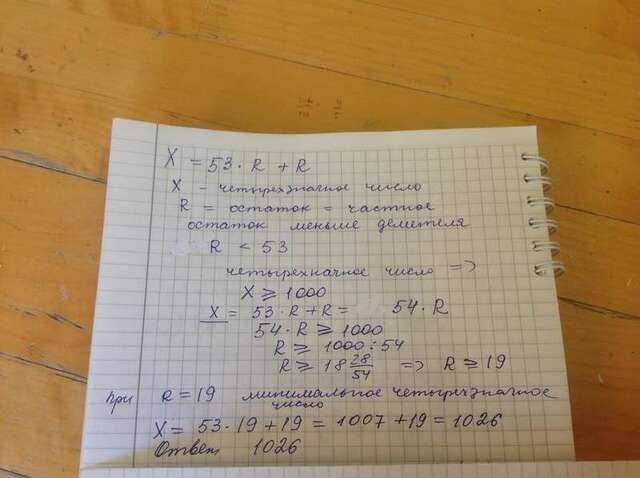 X = 53 · R + R
X - четырехзначное число
R = остаток = частное
остаток меньше делителя
R < 53
четырехзначное число =>
X ⩾ 1000
X = 53·R + R = 54·R
54·R ⩾ 1000
R ⩾ 1000 : 54
R ⩾ 18 28/54 => R ⩾ 19
при R = 19 минимальное четырехзначное
число
X = 53·19 + 19 = 1007 + 19 = 1026
Ответ 1026